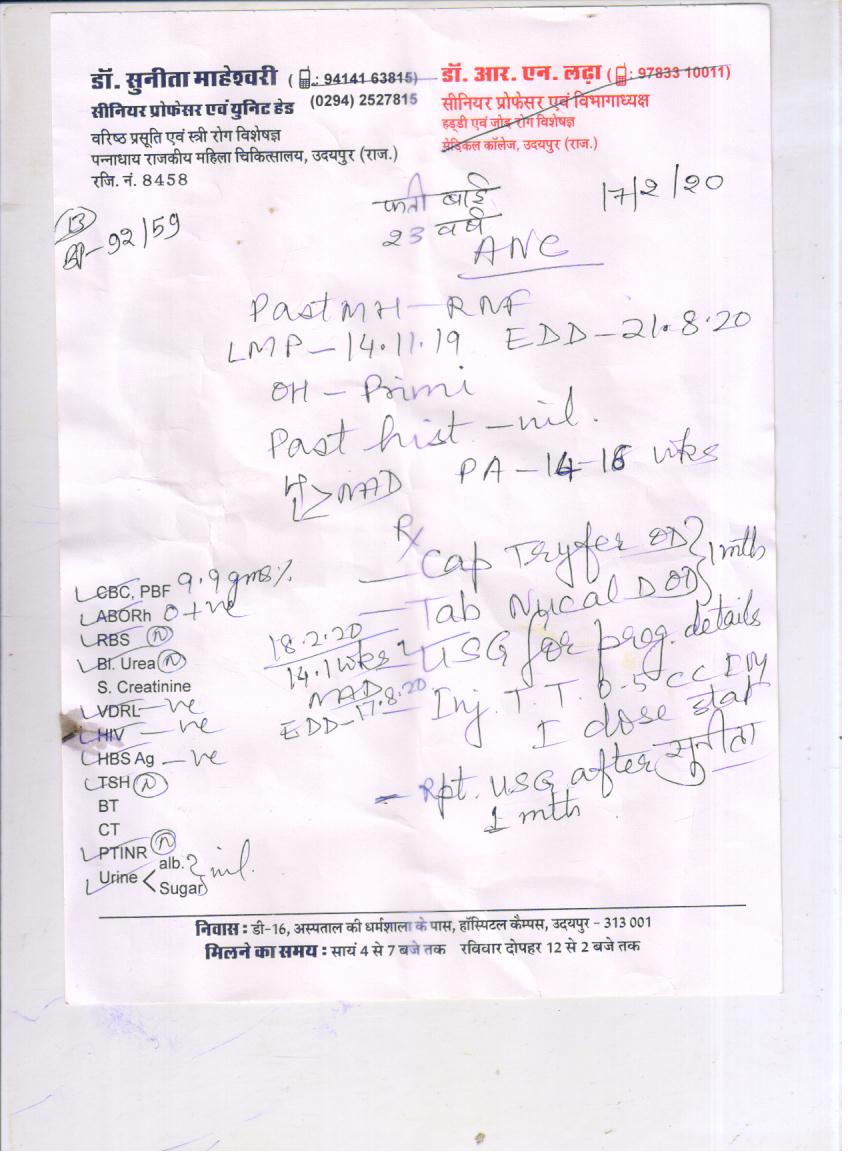 डॉ. सुनीता माहेश्वरी (: 94141 63815)
सीनियर प्रोफेसर एवं युनिट हेड (0294) 2527815
वरिष्ठ प्रसूति एवं स्त्री रोग विशेषज्ञ
पन्नाधाय राजकीय महिला चिकित्सालय, उदयपुर (राज.)
रजि. नं. 8458
डॉ. आर. एन. लढ़ा (: 97833 10011)
सीनियर प्रोफेसर एवं विभागाध्यक्ष
हड्डी एवं जोड़ रोग विशेषज्ञ
मेडिकल कॉलेज, उदयपुर (राज.)
बाई
17/2/20
23 वर्ष
92/59
ANC
Past MH - RNF
LMP - 14.11.19 EDD - 21.8.20
OH - Primi
Past hist. - nil.
NAD PA - 14-16 wks
Rx
Cap Tryfer OD } 1 mth
Tab D OD
USG for preg. details
Inj. T.T. 0.5 CC IM
I dose stat
- Rpt. USG after सुनीता
1 mth
18.2.20
14.1 wks
NAD
EDD - 17.8.20
CBC, PBF 9.9 gms%
ABORh O +ve
RBS (N)
Bl. Urea (N)
S. Creatinine
VDRL -ve
HIV - ve
HBS Ag - ve
TSH (N)
BT
CT
PTINR (N)
Urine < alb. } nil.
Sugar
निवास : डी-16, अस्पताल की धर्मशाला के पास, हॉस्पिटल कैम्पस, उदयपुर - 313 001
मिलने का समय : सायं 4 से 7 बजे तक रविवार दोपहर 12 से 2 बजे तक